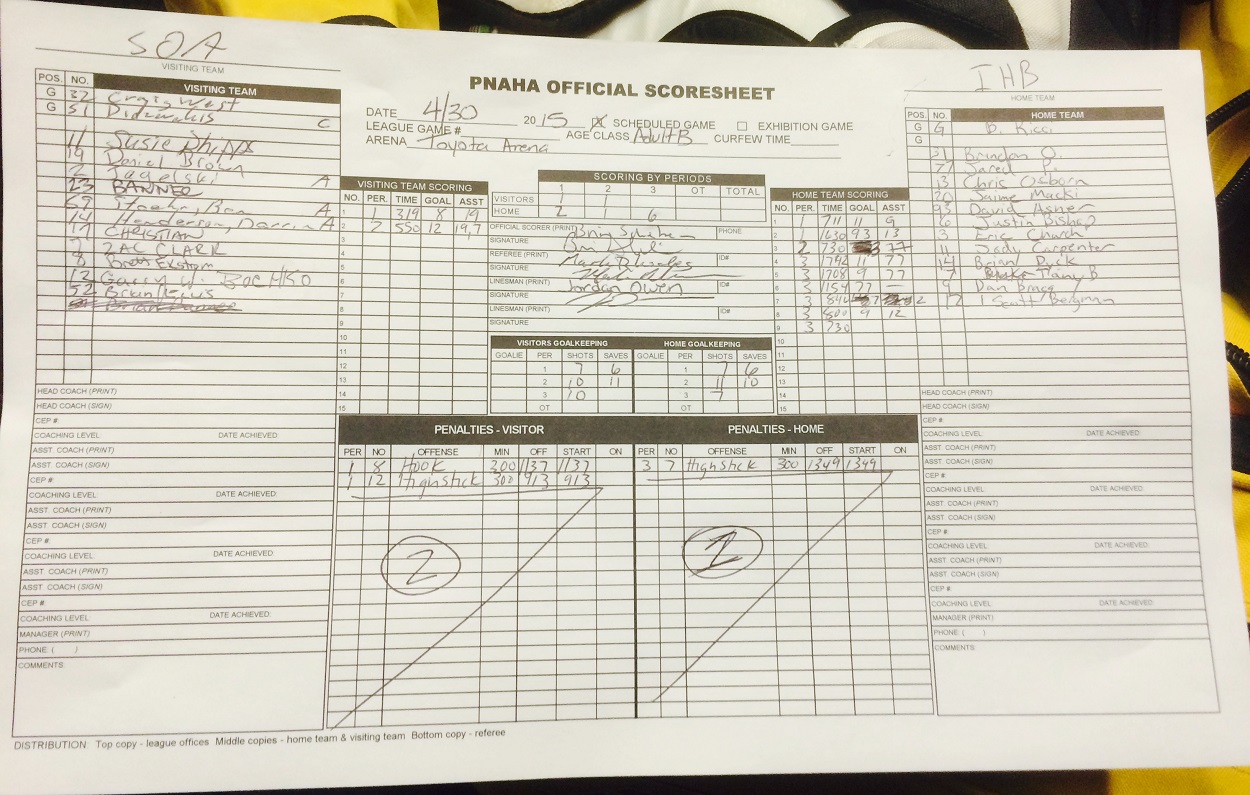 SOA
VISITING TEAM
IHB
HOME TEAM
PNAHA OFFICIAL SCORESHEET
DATE 4/30 2015 SCHEDULED GAME EXHIBITION GAME
LEAGUE GAME # AGE CLASS Adult B CURFEW TIME
ARENA Toyota Arena
POS. NO. VISITING TEAM
G 32 Craig West
G 51 C
11 Susie
19 Daniel Brown
2 Jagelski A
23 BANNER
A
14 Henderson, Darrin A
17 CHRISTIAN
7 ZAC CLARK
8 Brett Ekstom
12
52
HEAD COACH (PRINT)
HEAD COACH (SIGN)
CEP #:
COACHING LEVEL DATE ACHIEVED
ASST. COACH (PRINT)
ASST. COACH (SIGN)
CEP #:
COACHING LEVEL DATE ACHIEVED
ASST. COACH (PRINT)
ASST. COACH (SIGN)
CEP #:
COACHING LEVEL DATE ACHIEVED
ASST. COACH (PRINT)
ASST. COACH (SIGN)
CEP #:
COACHING LEVEL DATE ACHIEVED
MANAGER (PRINT)
PHONE ( )
COMMENTS:
VISITING TEAM SCORING
NO. PER. TIME GOAL ASST
1 1 319 8 19
2 2 550 12 19,7
3
4
5
6
7
8
9
10
11
12
13
14
15
SCORING BY PERIODS
1 2 3 OT TOTAL
VISITORS 1 1
HOME 2 6
OFFICIAL SCORER (PRINT) PHONE
SIGNATURE
REFEREE (PRINT) ID#
SIGNATURE
LINESMAN (PRINT) Jordan Owen ID#
SIGNATURE
LINESMAN (PRINT) ID#
SIGNATURE
VISITORS GOALKEEPING HOME GOALKEEPING
GOALIE PER SHOTS SAVES GOALIE PER SHOTS SAVES
1 7 6 1 7 6
2 10 11 2 11 10
3 10 3 7
OT OT
HOME TEAM SCORING
NO. PER. TIME GOAL ASST
1 711 11 9
2 1 1630 93 13
3 2 730 77
4 3 1742 11 77
5 3 1708 9 77
6 3 1154 77 —
7 3 840
8 3 500 9 12
9 3 730
10
11
12
13
14
15
POS. NO. HOME TEAM
G G B. Ricci
G
31 Brandon O.
77 Jared P.
13 Chris Osborn
20 Jaime Macki
93 David Asher
6 Justin Bishop
3 Eric Church
11 Jody Carpenter
14 Brian Dyck
7 Tany B
9 Dan Bragg
12 Scott Bergman
HEAD COACH (PRINT)
HEAD COACH (SIGN)
CEP #:
COACHING LEVEL DATE ACHIEVED
ASST. COACH (PRINT)
ASST. COACH (SIGN)
CEP #:
COACHING LEVEL DATE ACHIEVED
ASST. COACH (PRINT)
ASST. COACH (SIGN)
CEP #:
COACHING LEVEL DATE ACHIEVED
ASST. COACH (PRINT)
ASST. COACH (SIGN)
CEP #:
COACHING LEVEL DATE ACHIEVED
MANAGER (PRINT)
PHONE ( )
COMMENTS:
PENALTIES - VISITOR PENALTIES - HOME
PER NO OFFENSE MIN OFF START ON PER NO OFFENSE MIN OFF START ON
1 8 Hook 300 1137 1137 3 7 Highstick 300 1349 1349
1 12 Highstick 300 913 913
2 1
DISTRIBUTION Top copy - league offices Middle copies - home team & visiting team Bottom copy - referee